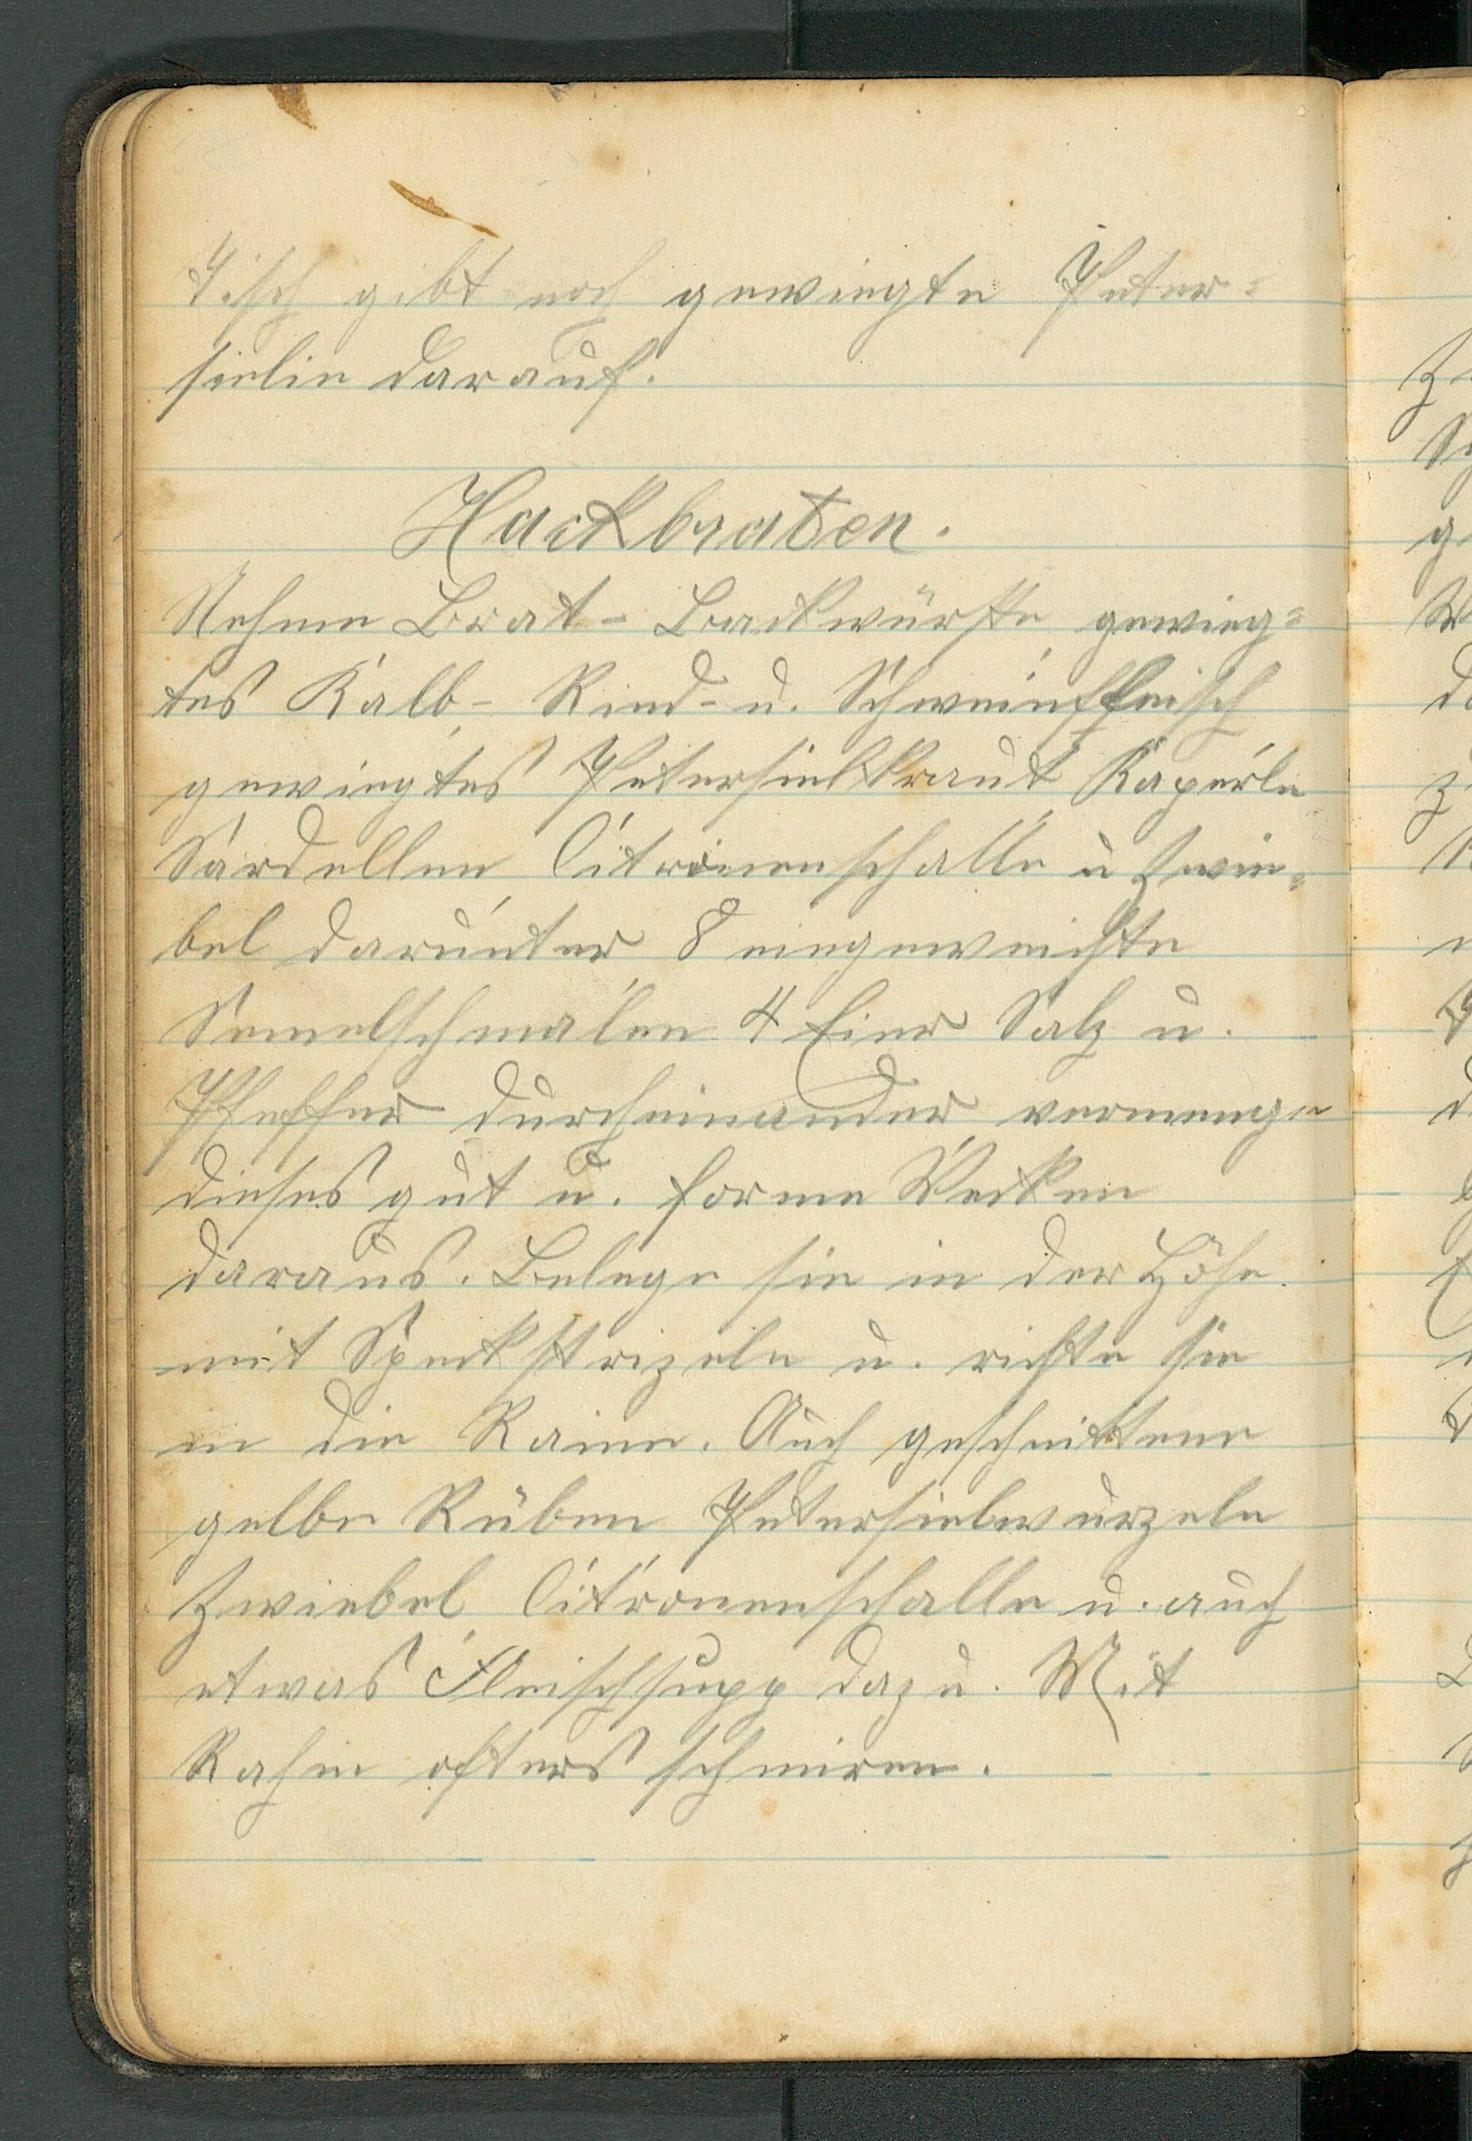 Tisch gibt noch gewiegte Peter=
sielie darauf.
Hackbraten.
Nehme Brat- Backwürste gewieg=
tes Kalb- Rind- u. Schweinefleisch
gewiegtes Petersielkraut Kaperle
Sardellen Citronenschalle u Zwie=
bel darunter 8 eingeweichte
Semelschmalen 4 Eier Salz u.
Pfeffer durcheinander vermenge
dieses gut u. forme Wecken
daraus. Belege sie in der Höhe
mit Speckstrizeln u. richte sie
in die Raine. Auch geschnittene
gelbe Rüben Petersielwurzeln
Zwiebel Citronenschalle u. auch
etwas Fleischsupp dazu. Mit
Rahm ofters schmiren.